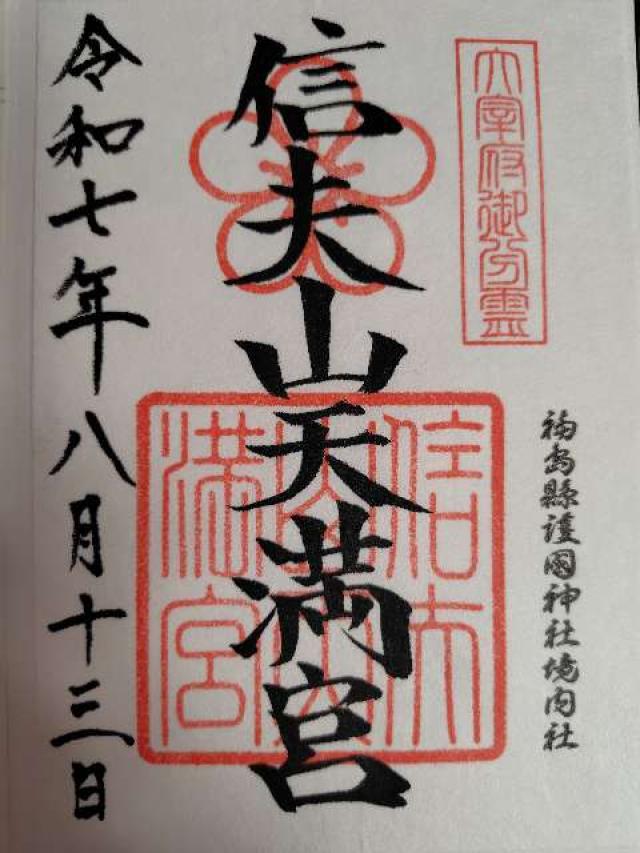 太宰府御分霊
福島縣護國神社境内社
信夫山天満宮
信夫山天満宮
令和七年八月十三日